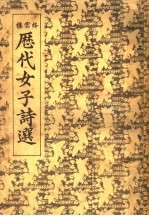 歷代女子詩選